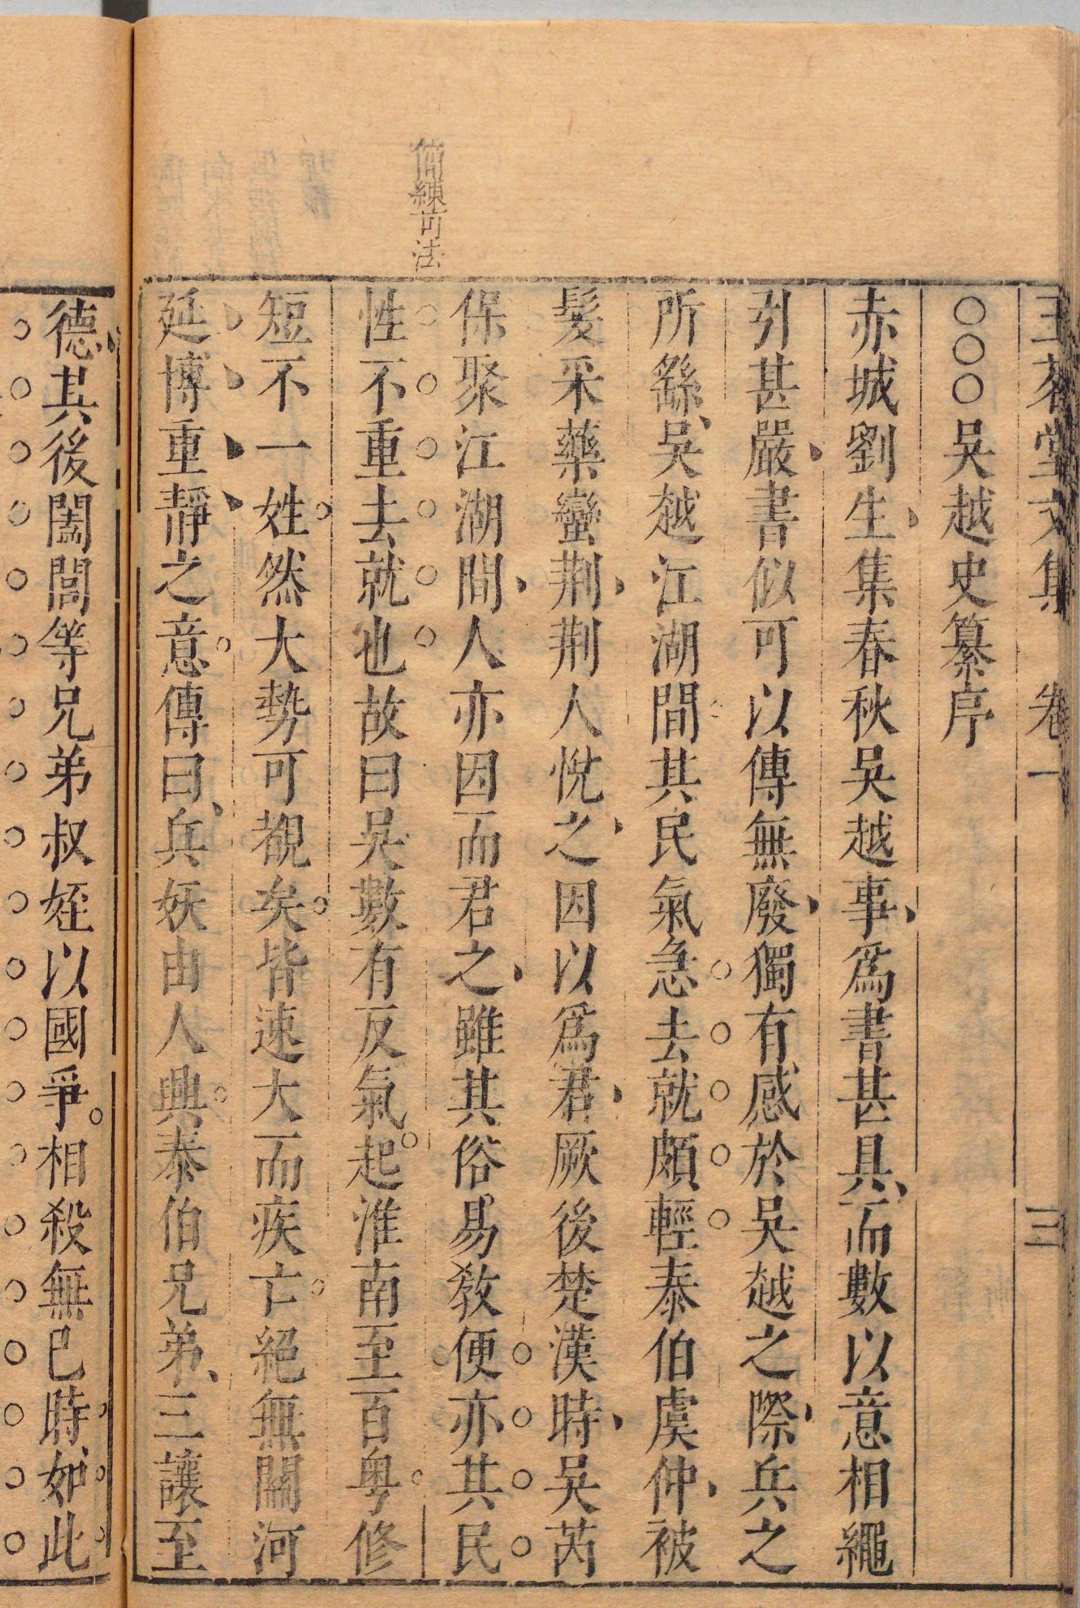 玉茗堂文集 卷一 三
○○○吳越史纂序
赤城劉生集春秋吳越事爲書甚具而數以意相繩
引甚嚴書似可以傳無廢獨有感於吳越之際兵之
所繇吳越江湖間其民氣急去就頗輕泰伯虞仲被
髮采藥蠻荆荆人悅之因以爲君厥後楚漢時吳芮
保聚江湖間人亦因而君之雖其俗易教便亦其民
簡練可法
性不重去就也故曰吳數有反氣起淮南至百粤修
短不一姓然大勢可覩矣皆速大而疾亡絕無關河
延博重靜之意傳曰兵妖由人興泰伯兄弟三讓至
德其後闔閭等兄弟叔姪以國爭相殺無已時如此